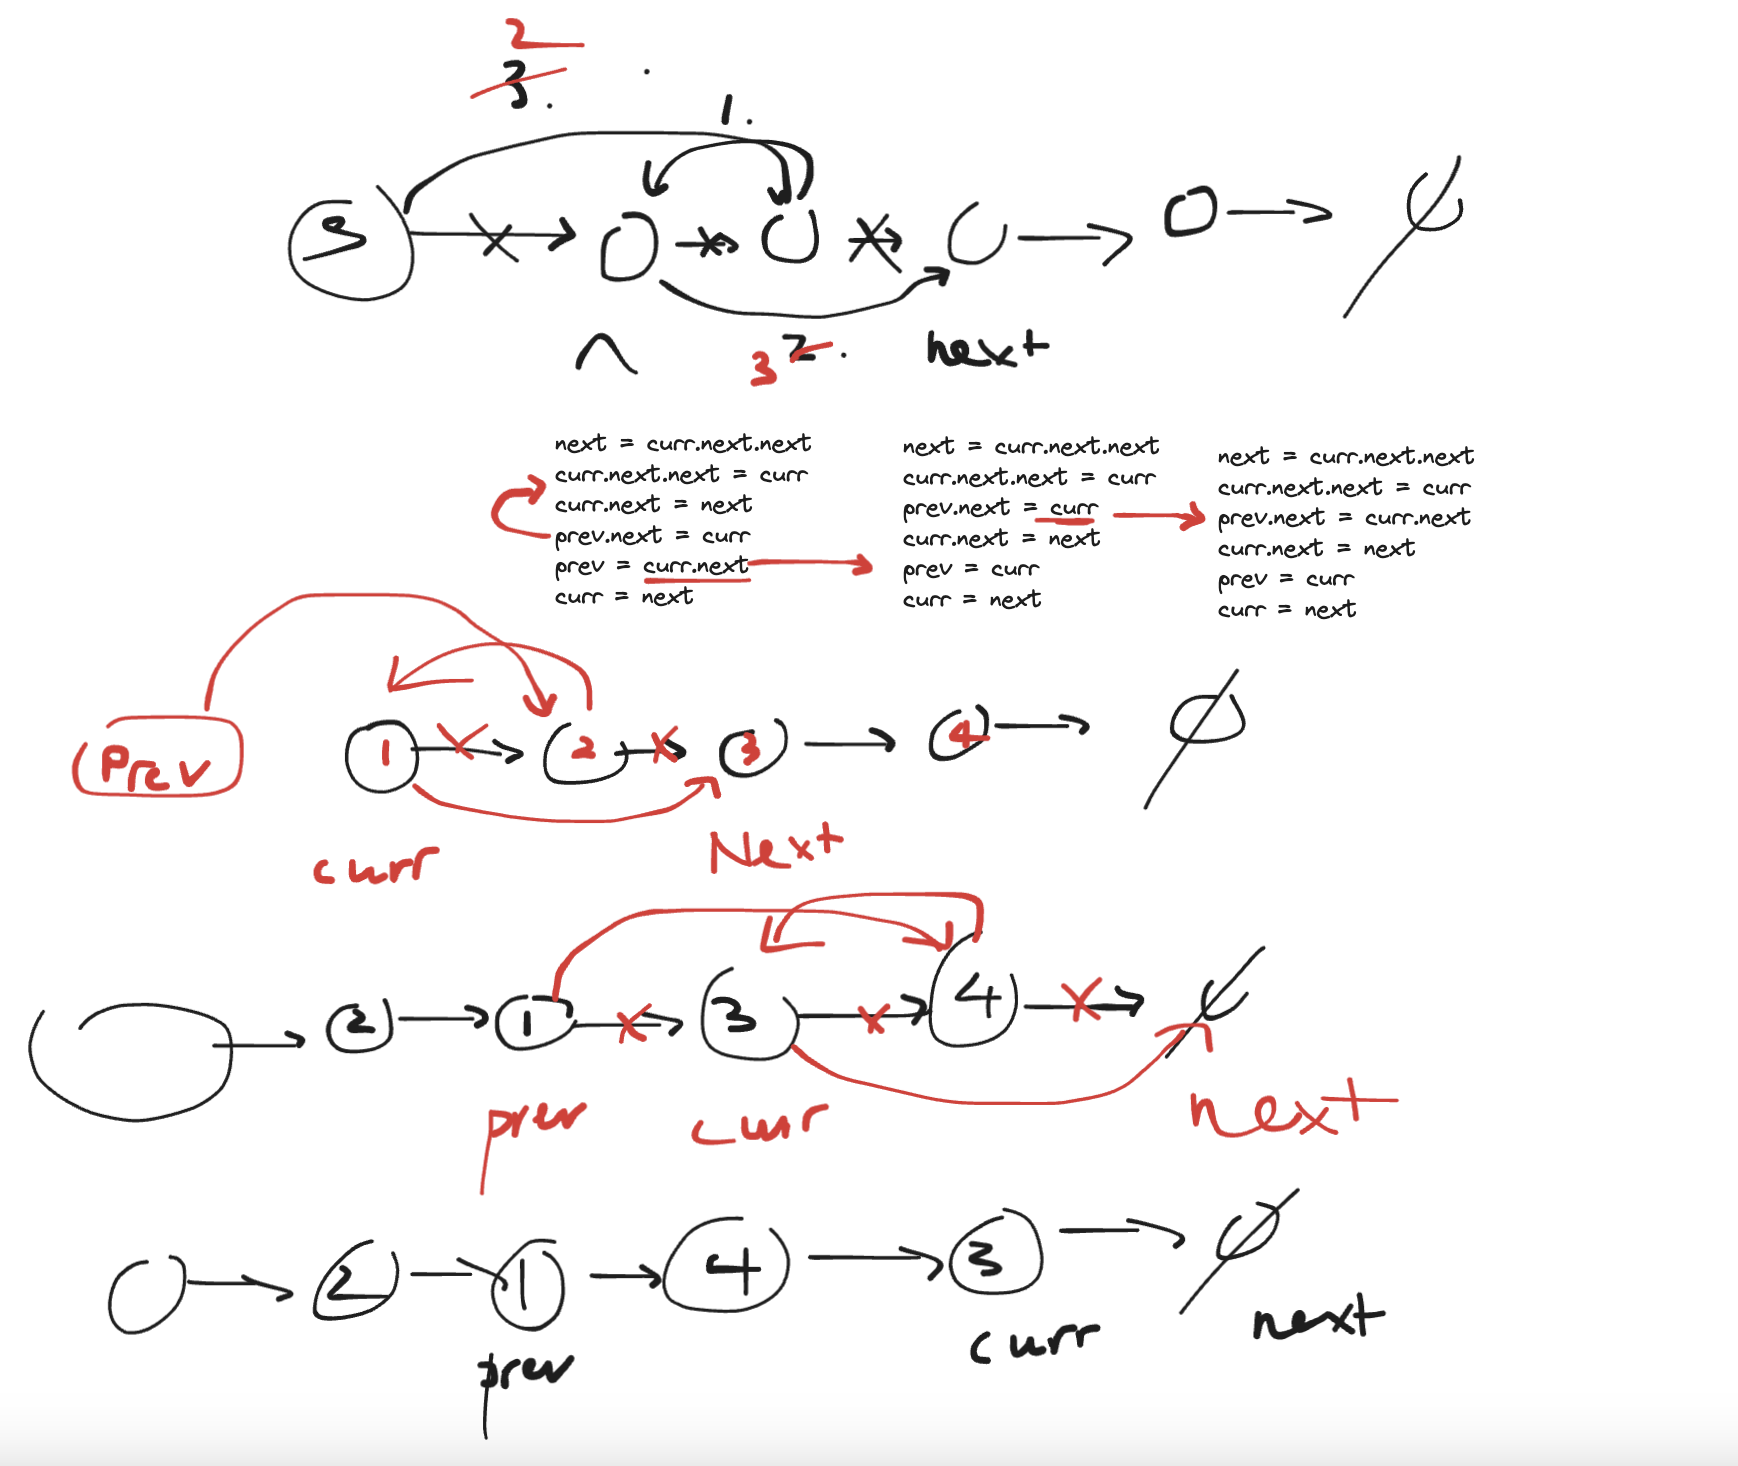 2
3.
1.
S
3 2.
next
next = curr.next.next
curr.next.next = curr
curr.next = next
prev.next = curr
prev = curr.next
curr = next
next = curr.next.next
curr.next.next = curr
prev.next = curr
curr.next = next
prev = curr
curr = next
next = curr.next.next
curr.next.next = curr
prev.next = curr.next
curr.next = next
prev = curr
curr = next
Prev 1 2 3 4
curr Next
2 1 3 4
prev curr next
2 1 4 3
prev curr next